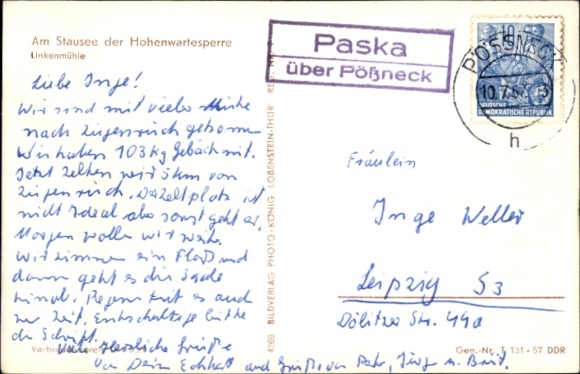 Am Stausee der Hohenwartesperre
Linkenmühle
Paska
über Pößneck
PÖSSNECK
10.7.57
h
10
DEUTSCHE
DEMOKRATISCHE REPUBLIK
Liebe Inge!
Wir sind mit viel Mühe
nach Ziegenrück gekomme
Wir haben 103 kg Gebäck mit.
Jetzt zelten wir 5 km von
Ziegenrück. Der Zeltplatz ist
nicht Ideal aber sonst geht es.
Morgen wollen wir weit.
Wir zimmern ein Floß und
dann geht es die Saale
hinab. Regnen tut es auch
zur Zeit. Entschuldige bitte
die Schrift.
Viele Herzliche Grüße
von Dein Eckhart und Grüße von Petr, Jürg u. Brit.
Fräulein
Inge Weller
Leipzig S3
Dölitzer Str. 49a
4369 BILDVERLAG PHOTO-KÖNIG LOBENSTEIN-THÜR
Gen.-Nr. T 131 - 57 DDR